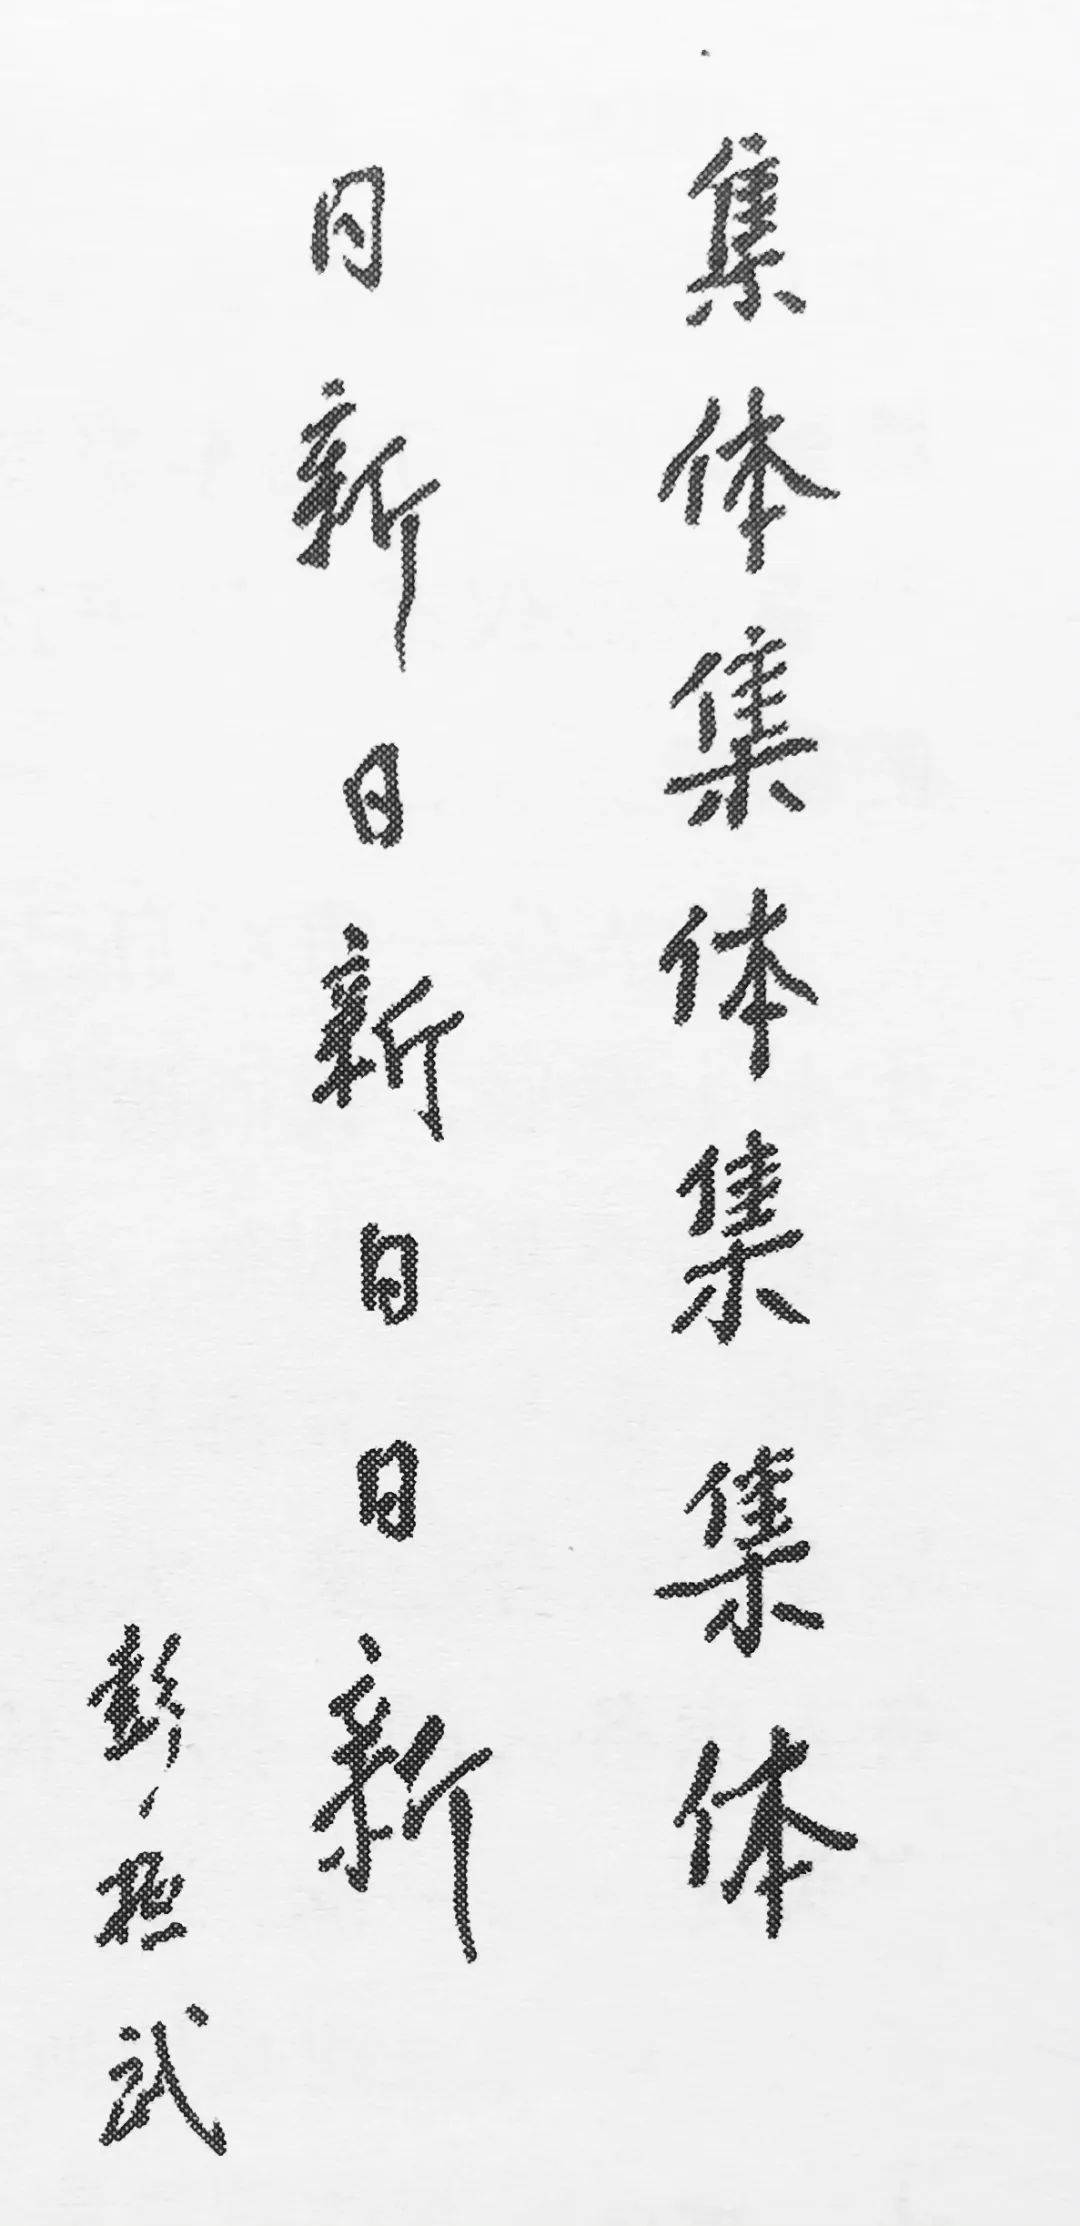 集体集体集集体
日新日新日日新
彭桓武